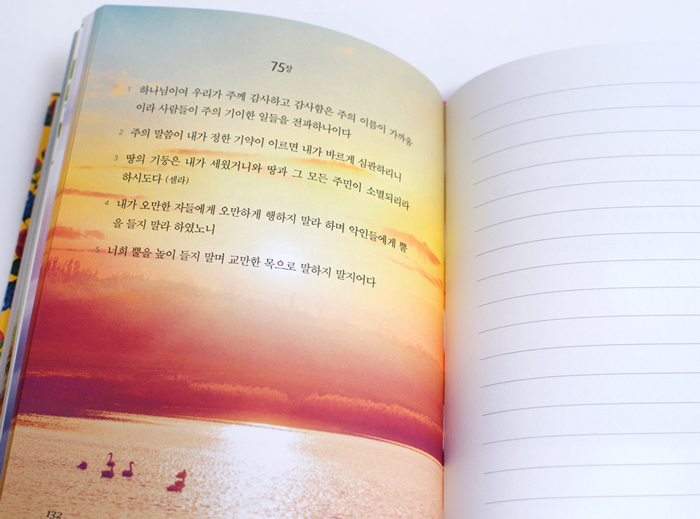 75장
1 하나님이여 우리가 주께 감사하고 감사함은 주의 이름이 가까움
이라 사람들이 주의 기이한 일들을 전파하나이다
2 주의 말씀이 내가 정한 기약이 이르면 내가 바르게 심판하리니
3 땅의 기둥은 내가 세웠거니와 땅과 그 모든 주민이 소멸되리라
하시도다 (셀라)
4 내가 오만한 자들에게 오만하게 행하지 말라 하며 악인들에게 뿔
을 들지 말라 하였노니
5 너희 뿔을 높이 들지 말며 교만한 목으로 말하지 말지어다
132